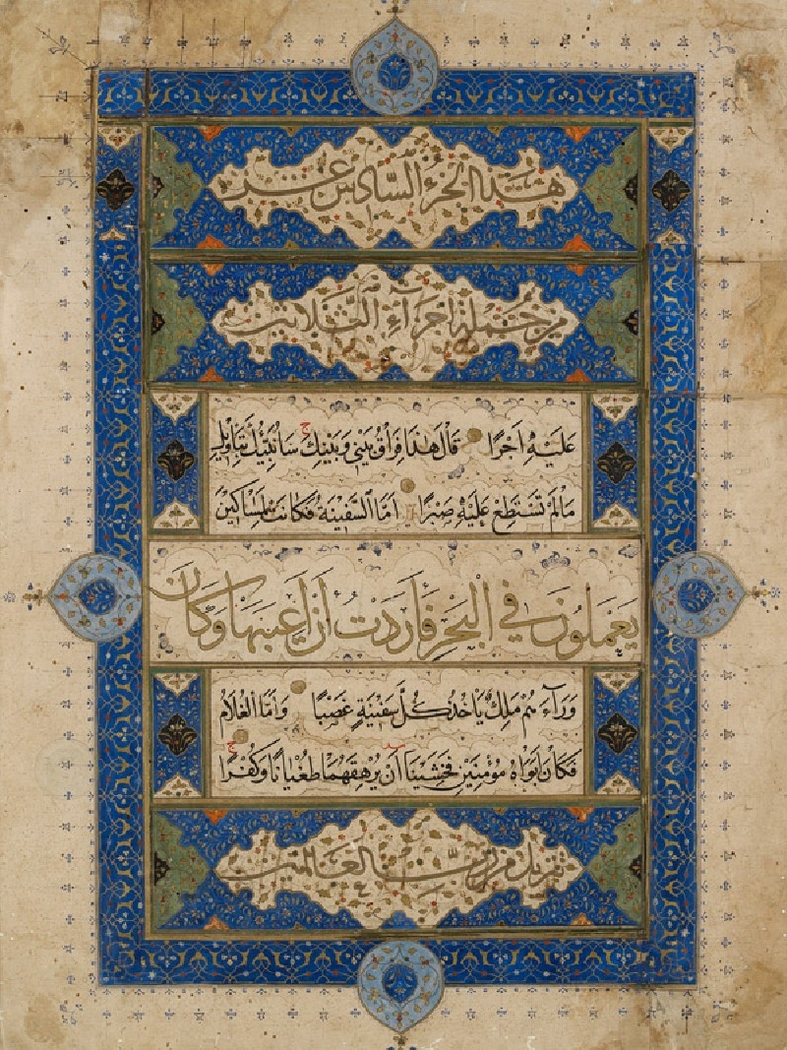 هذا الجزء السادس عشر
من جملة اجزاء الثلاثين
عَلَيْهِ اَجْرًا قَالَ هٰذَا فِرَاقُ بَيْنِي وَبَيْنِكَ سَاُنَبِّئُكَ بِتَأْوِيلِ
مَا لَمْ تَسْتَطِعْ عَلَيْهِ صَبْرًا اَمَّا السَّفِينَةُ فَكَانَتْ لِمَسَاكِينَ
يَعْمَلُونَ فِي الْبَحْرِ فَاَرَدْتُ اَنْ اَعِيبَهَا وَكَانَ
وَرَآءَهُمْ مَلِكٌ يَاْخُذُ كُلَّ سَفِينَةٍ غَصْبًا وَاَمَّا الْغُلَامُ
فَكَانَ اَبَوَاهُ مُؤْمِنَيْنِ فَخَشِينَا اَنْ يُرْهِقَهُمَا طُغْيَانًا وَكُفْرًا
تنزيل من رب العالمين